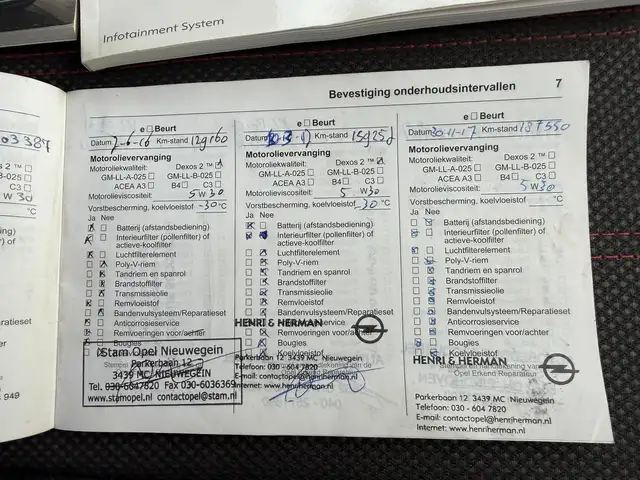 Infotainment System
Bevestiging onderhoudsintervallen 7
03389
Dexos 2 ™
B-025
C3
W 30
°C
ing)
r) of
ratieset
hter
949
e Beurt
Datum 2-6-16 Km-stand 129160
Motorolievervanging
Motoroliekwaliteit: Dexos 2 ™
GM-LL-A-025 GM-LL-B-025
ACEA A3 B4 C3
Motorolieviscositeit: 5 W 30
Vorstbescherming, koelvloeistof -30 °C
Ja Nee
Batterij (afstandsbediening)
Interieurfilter (pollenfilter) of
actieve-koolfilter
Luchtfilterelement
Poly-V-riem
Tandriem en spanrol
Brandstoffilter
Transmissieolie
Remvloeistof
Bandenvulsysteem/Reparatieset
Anticorrosieservice
Remvoeringen voor/achter
Bougies
Stam Opel Nieuwegein
Parkerbaan 12
3439 MC NIEUWEGEIN
Tel. 030-6047820 Fax 030-6036369
www.stamopel.nl contactopel@stam.nl
e Beurt
Datum Km-stand
Motorolievervanging
Motoroliekwaliteit: Dexos 2 ™
GM-LL-A-025 GM-LL-B-025
ACEA A3 B4 C3
Motorolieviscositeit: 5 W30
Vorstbescherming, koelvloeistof -30 °C
Ja Nee
Batterij (afstandsbediening)
Interieurfilter (pollenfilter) of
actieve-koolfilter
Luchtfilterelement
Poly-V-riem
Tandriem en spanrol
Brandstoffilter
Transmissieolie
Remvloeistof
Bandenvulsysteem/Reparatieset
Anticorrosieservice
Remvoeringen voor/achter
Bougies
Koelvloeistof
HENRI & HERMAN
Parkerbaan 12 3439 MC Nieuwegein
Telefoon: 030 - 604 7820
E-mail: contactopel@henriherman.nl
Internet: www.henriherman.nl
e Beurt
Datum 30-11-17 Km-stand 187550
Motorolievervanging
Motoroliekwaliteit: Dexos 2 ™
GM-LL-A-025 GM-LL-B-025
ACEA A3 B4 C3
Motorolieviscositeit: 5 W30
Vorstbescherming, koelvloeistof °C
Ja Nee
Batterij (afstandsbediening)
Interieurfilter (pollenfilter) of
actieve-koolfilter
Luchtfilterelement
Poly-V-riem
Tandriem en spanrol
Brandstoffilter
Transmissieolie
Remvloeistof
Bandenvulsysteem/Reparatieset
Anticorrosieservice
Remvoeringen voor/achter
Bougies
Koelvloeistof
Stempel en handtekening van de
Opel Erkend Reparateur
HENRI & HERMAN
Parkerbaan 12 3439 MC Nieuwegein
Telefoon: 030 - 604 7820
E-mail: contactopel@henriherman.nl
Internet: www.henriherman.nl